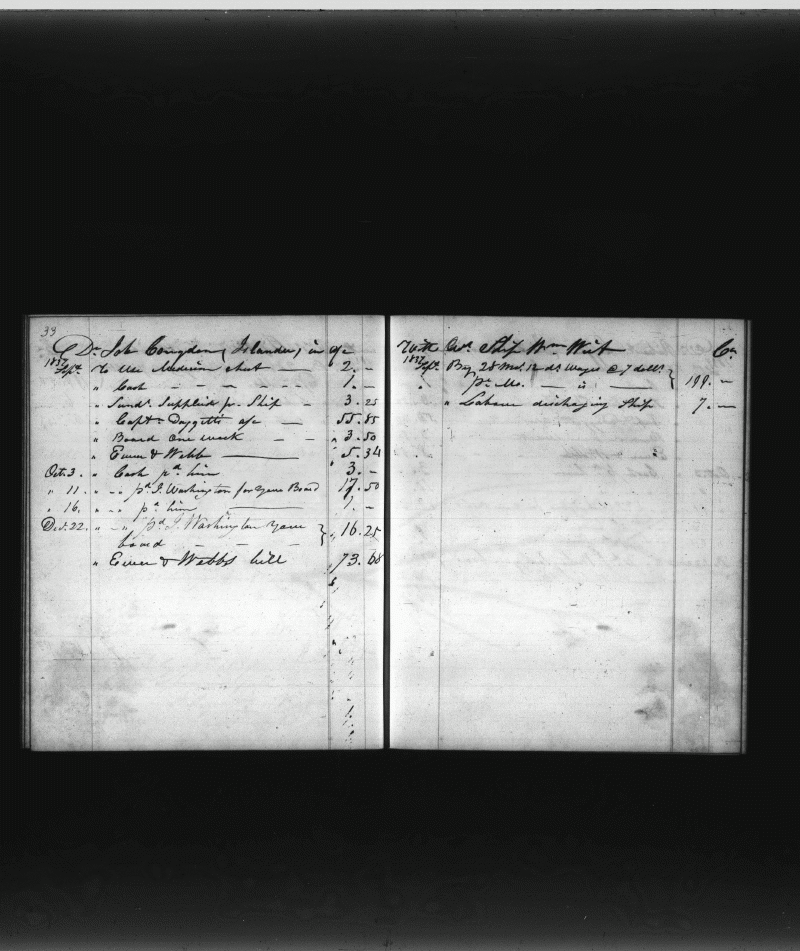 33
Dr. Job Congdon, (Islander) in a/c
1837
Sept. " To Use Medicine chest — 2. –
" Cash – – – – 1. –
" Sunds. Supplies pr. Ship – 3.25
" Captn. Daggetts a/c — 55.85
" Board One week – – " 3.50
" Ewer & Webb — " 5.34
Oct. 3. " Cash pd. him 3. –
" 11. " -"- pd. J. Washington for your Board 17.50
" 16. " -"- pd. him — 1. –
Dec. 22. " -"- pd. J. Washington your } " 16.25
board – – –
" Ewer & Webbs bill " 73.68
With Ship Wm. Wirt Cr.
1837
Sept. By 28 Mos. 12 ds. Wages @ 7 dolls. }
" pr. Mo. — " — } 199. –
" Labour discharging Ship 7. –